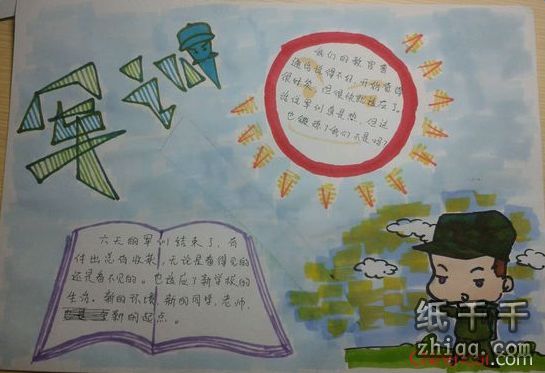 军训
我们的教官普
通话说得不好,开始觉得
很好笑,但很快就适应了。
军训真是,但这
也锻炼了我们不是吗?
六天的军训结束了,有
付出总有收获,无论是看得见的
还是看不见的。也适应了新学校的
生活。新的环境,新的同学,老师,
新的起点。
纸千千
zhiqq.com